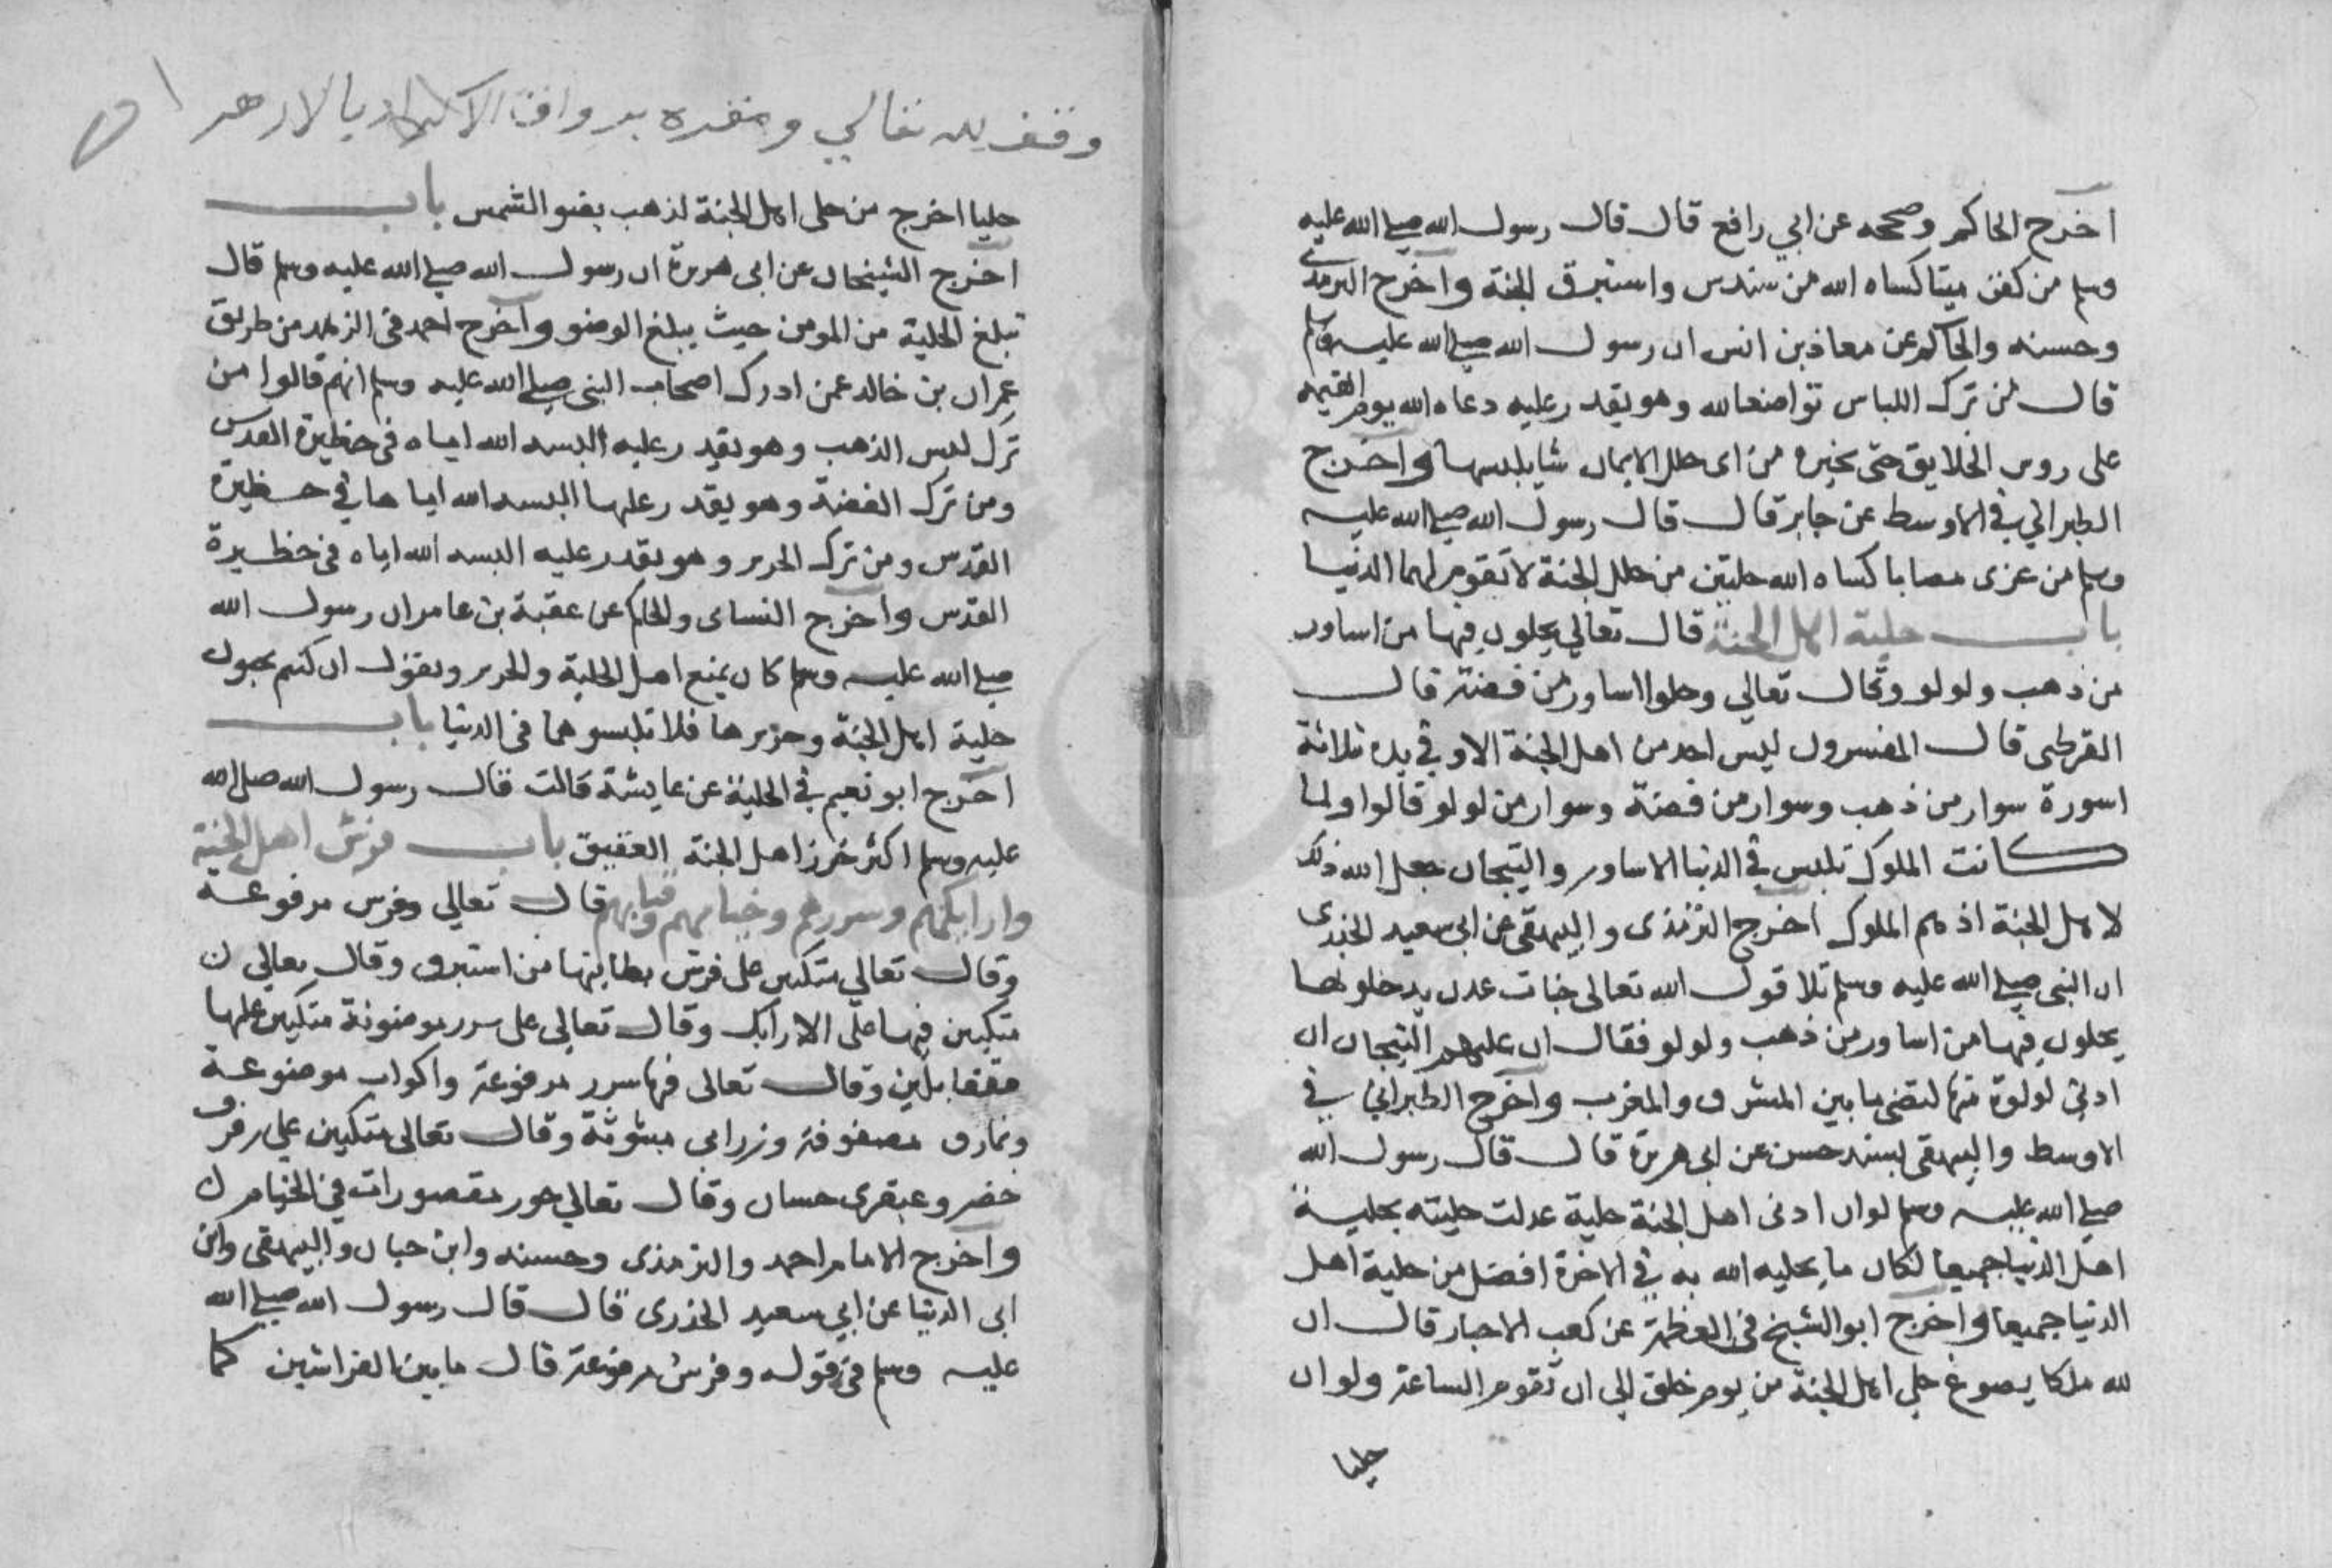 اخرج الحاكم وصححه عن ابي رافع قال قال رسول الله صلى الله عليه
وسلم من كفن ميتا كساه الله من سندس واستبرق الجنة واخرج الترمذى
وحسنه والحاكم عن معاذ بن انس ان رسول الله صلى الله عليه وسلم
قال من ترك اللباس تواضعا لله وهو يقدر عليه دعاه الله يوم القيمه
على روس الخلايق حتى يخيره من اى حلل الايمان شا يلبسها واخرج
الطبراني في الاوسط عن جابر قال قال رسول الله صلى الله عليه
وسلم من عزى مصابا كساه الله حلتين من حلل الجنة لا تقوم لهما الدنيا
باب حلية اهل الجنة قال تعالي يحلون فيها من اساور
من ذهب ولولو وقال تعالي وحلوا اساور من فضة قال
القرطبى قال المفسرون ليس احد من اهل الجنة الا وفي يده ثلاثة
اسورة سوار من ذهب وسوار من فضة وسوار من لولو قالوا ولما
كانت الملوك تلبس في الدنيا الاساور والتيجان جعل الله ذلك
لاهل الجنة اذ هم الملوك اخرج الترمذى والبيهقى عن ابى سعيد الخدرى
ان النبى صلى الله عليه وسلم تلا قول الله تعالى جنات عدن يدخلونها
يحلون فيها من اساور من ذهب ولولو فقال ان عليهم التيجان ان
ادنى لولوة منها لتضى ما بين المشرق والمغرب واخرج الطبراني في
الاوسط والبيهقى بسند حسن عن ابى هريرة قال قال رسول الله
صلى الله عليه وسلم لو ان ادنى اهل الجنة حلية عدلت حليته بحلية
اهل الدنيا جميعا لكان ما يحليه الله به في الاخرة افضل من حلية اهل
الدنيا جميعا واخرج ابو الشيخ فى العظمة عن كعب الاحبار قال ان
لله ملكا يصوغ حلي اهل الجنة من يوم خلق الى ان تقوم الساعة ولو ان
حليا
وقف لله تعالي ومقره برواق الاكراد بالازهر
حليا اخرج من حلى اهل الجنة لذهب بضو الشمس باب
اخرج الشيخان عن ابى هريرة ان رسول الله صلى الله عليه وسلم قال
تبلغ الحلية من المومن حيث يبلغ الوضو واخرج احمد فى الزهد من طريق
عمران بن خالد عمن ادرك اصحاب النبى صلى الله عليه وسلم انهم قالوا من
ترك لبس الذهب وهو يقدر عليه البسه الله اياه فى حظيرة القدس
ومن ترك الفضة وهو يقدر عليها البسه الله اياها في حظيرة
القدس ومن ترك الحرير وهو يقدر عليه البسه الله اياه فى حظيرة
القدس واخرج النساى والحاكم عن عقبة بن عامر ان رسول الله
صلى الله عليه وسلم كان يمنع اهل الحلية والحرير ويقول ان كنتم تحبون
حلية اهل الجنة وحريرها فلا تلبسوهما فى الدنيا باب
اخرج ابو نعيم في الحلية عن عايشة قالت قال رسول الله صلى الله
عليه وسلم اكثر خرز اهل الجنة العقيق باب فرش اهل الجنة
وارايكهم وسررهم وخيامهم وقبابهم قال تعالي وفرش مرفوعة
وقال تعالي متكين على فرش بطاينها من استبرق وقال تعالي
متكين فيها على الارايك وقال تعالى على سرر موضونة متكين عليها
متقابلين وقال تعالى فيها سرر مرفوعة واكواب موضوعة
ونمارق مصفوفة وزرابى مبثوثة وقال تعالى متكيين على رفرف
خضر وعبقرى حسان وقال تعالي حور مقصورات في الخيام
واخرج الامام احمد والترمذى وحسنه وابن حبان والبيهقى وابن
ابى الدنيا عن ابي سعيد الخدرى قال قال رسول الله صلى الله
عليه وسلم فى قوله وفرش مرفوعة قال ما بين الفراشين كما